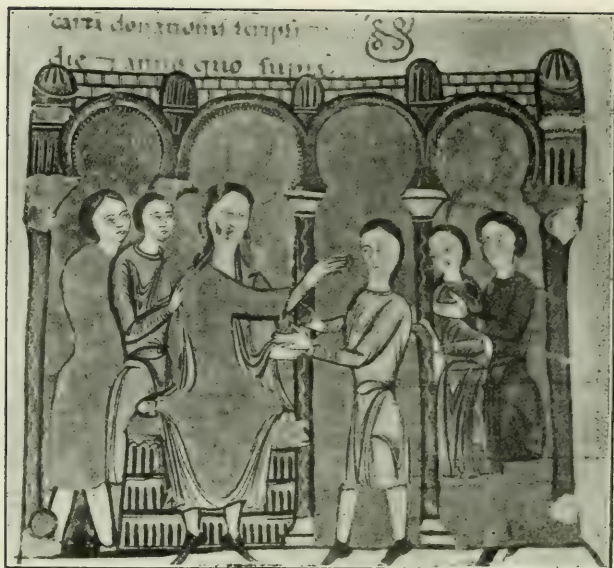 carta donationis scripti
die anno quo supra